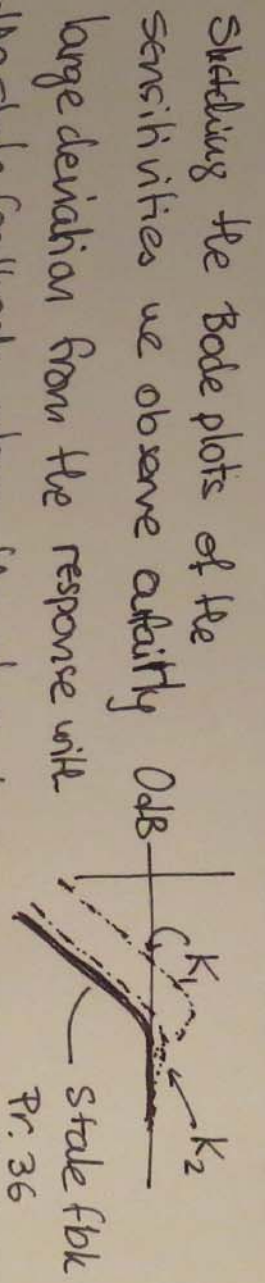 Sketching the Bode plots of the
sensitivities we observe a fairly
large deviation from the response with
0dB
K1
K2
State fbk
Pr. 36